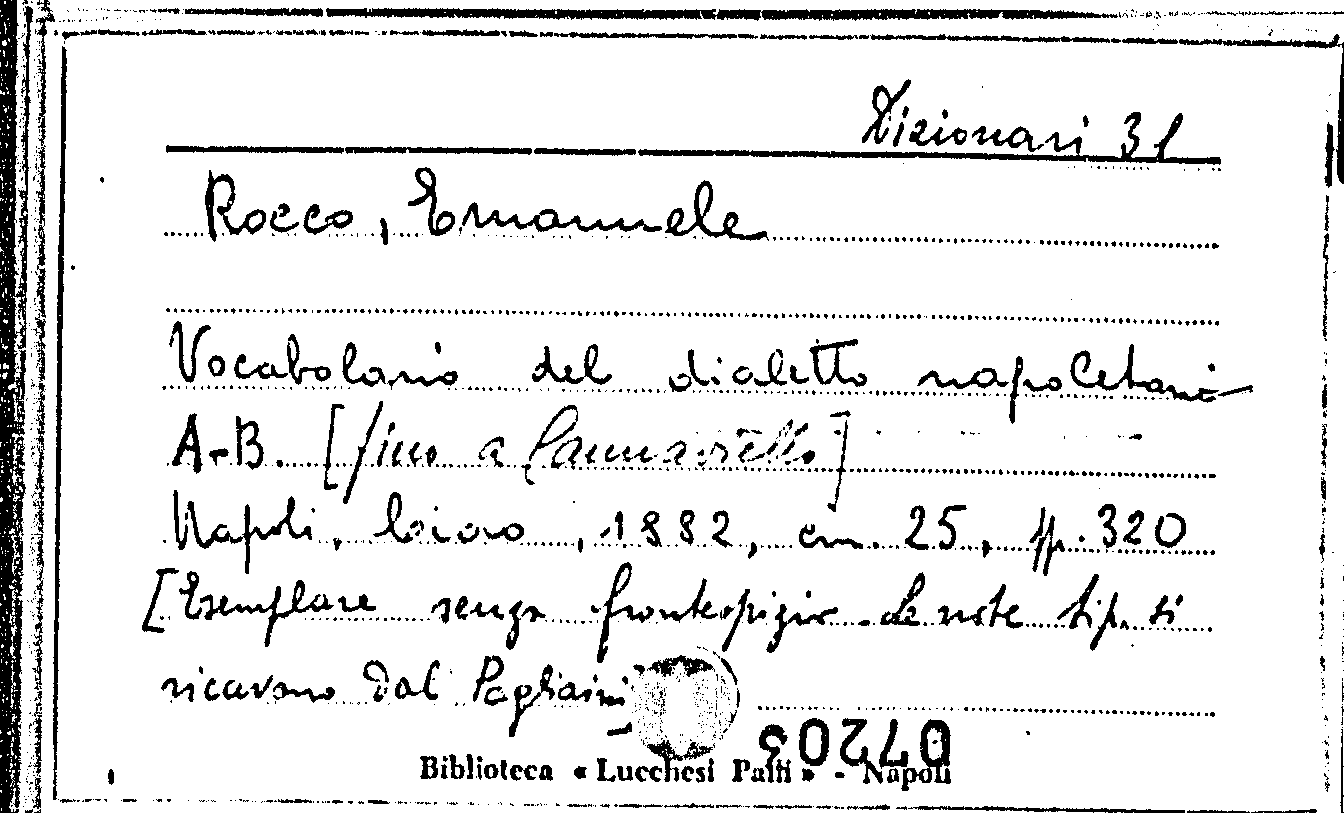 Dizionari 31
Rocco, Emanuele
Vocabolario del dialetto napoletano
A-B. [fino a
Napoli, 1882, cm. 25, pp. 320
[Esemplare senza frontespizio. Le note tip. si
ricavano dal Pagliaini
07203
Biblioteca « Lucchesi Palli » - Napoli